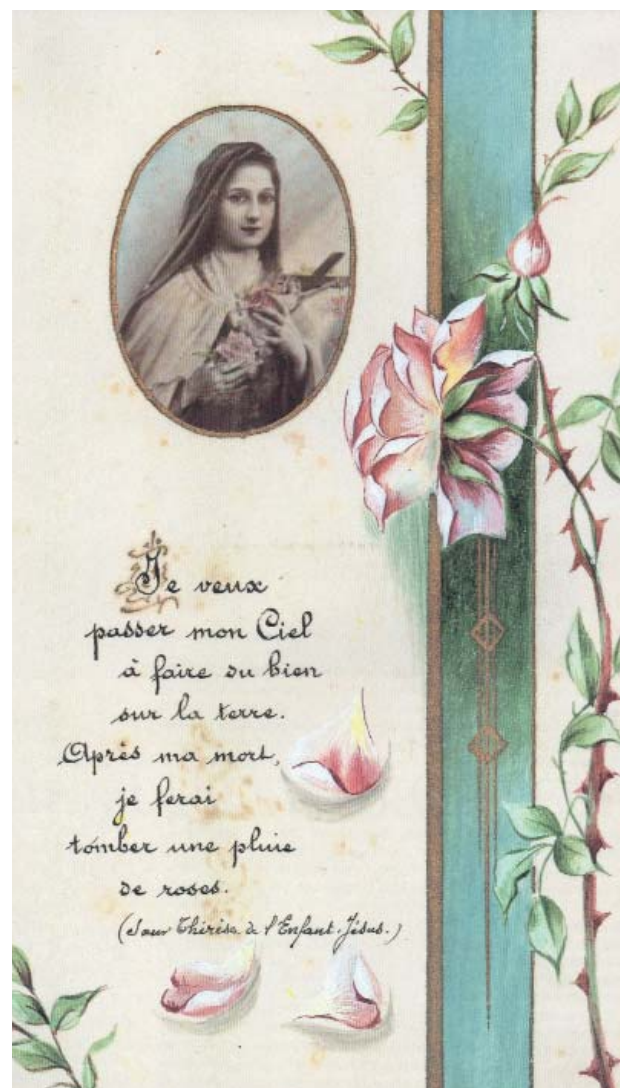 Je veux
passer mon Ciel
à faire du bien
sur la terre.
Après ma mort,
je ferai
tomber une pluie
de roses.
(Sœur Thérèse de l'Enfant-Jésus.)